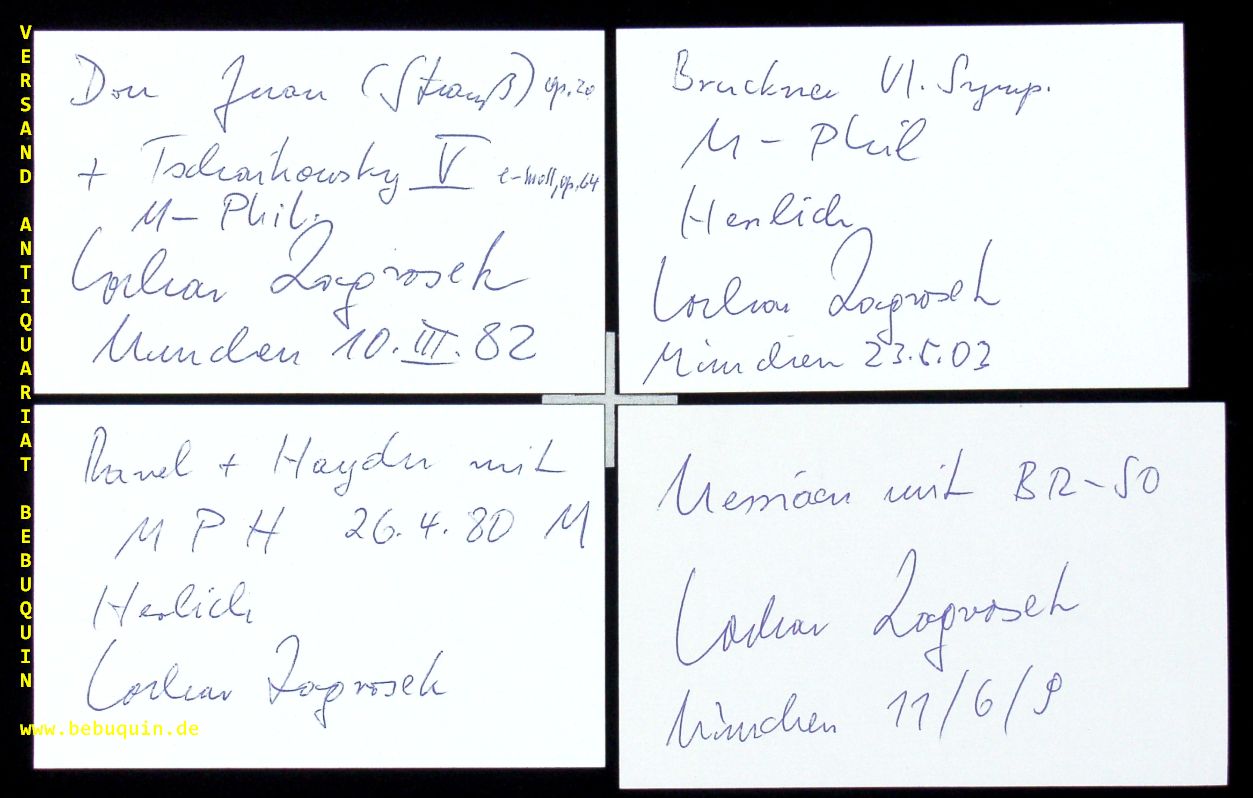 Don Juan (Strauß) op. 20
+ Tschaikowsky V e-moll, op. 64
M - Phil.
Lothar Zagrosek
München 10. III. 82
Bruckner VI. Symp.
M - Phil
Herzlich
Lothar Zagrosek
München 23.5.03
Ravel + Haydn mit
M P H 26.4.80 M
Herzlich
Lothar Zagrosek
Messiaen mit BR-SO
Lothar Zagrosek
München 11/6/9
VERSAND ANTIQUARIAT BEBUQUIN
www.bebuquin.de